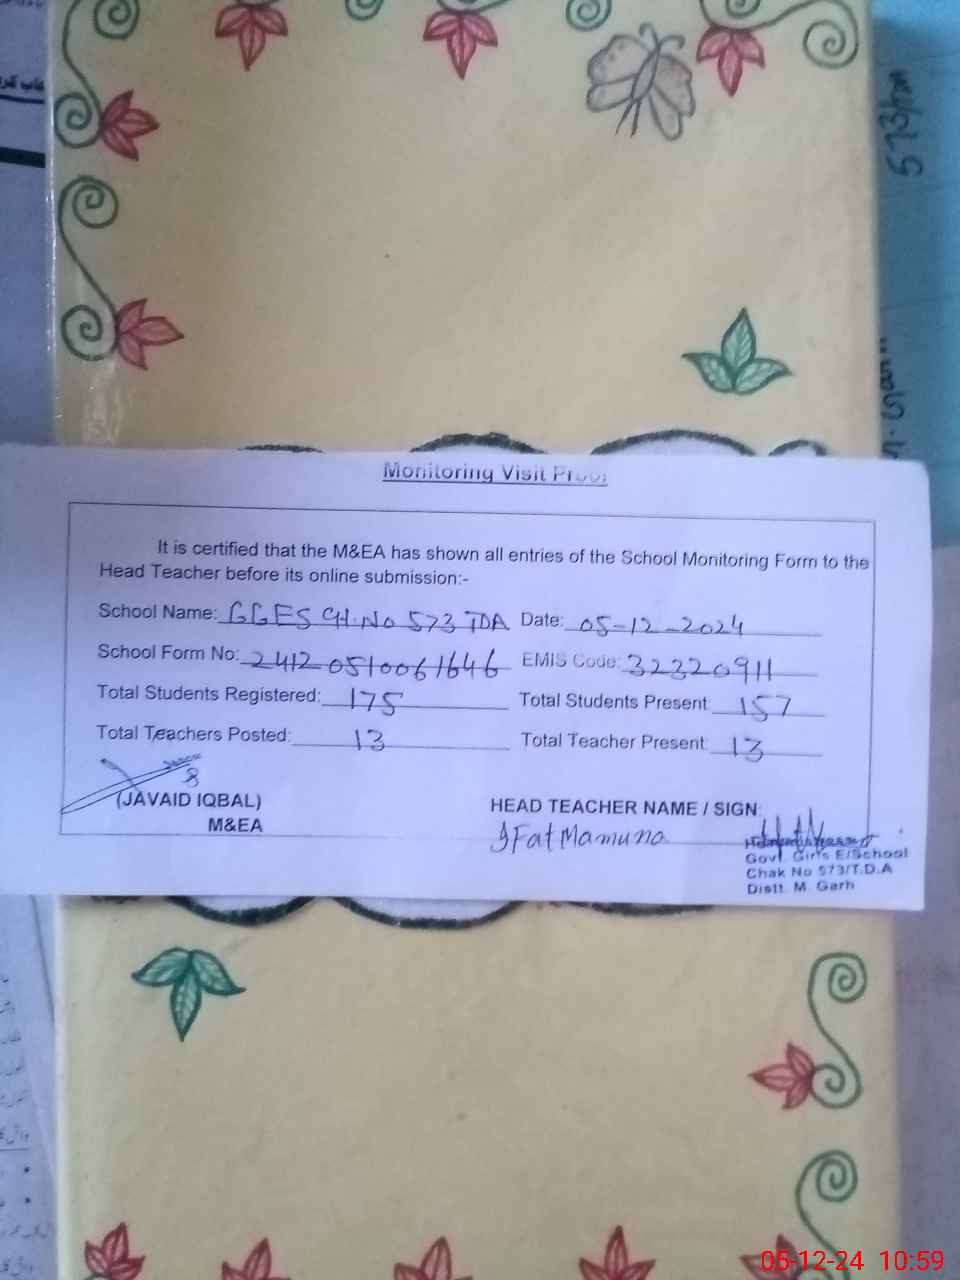 573/TDA
Monitoring Visit Proof
It is certified that the M&EA has shown all entries of the School Monitoring Form to the
Head Teacher before its online submission:-
School Name: GGES CH.No 573 TDA Date: 05-12-2024
School Form No: 2412 0510061646 EMIS Code: 32320911
Total Students Registered: 175 Total Students Present 157
Total Teachers Posted: 13 Total Teacher Present: 13
(JAVAID IQBAL)
M&EA
HEAD TEACHER NAME / SIGN:
IFat Mamuna
Govt. Girls E/School
Chak No 573/T.D.A
Distt. M. Garh
05-12-24 10:59